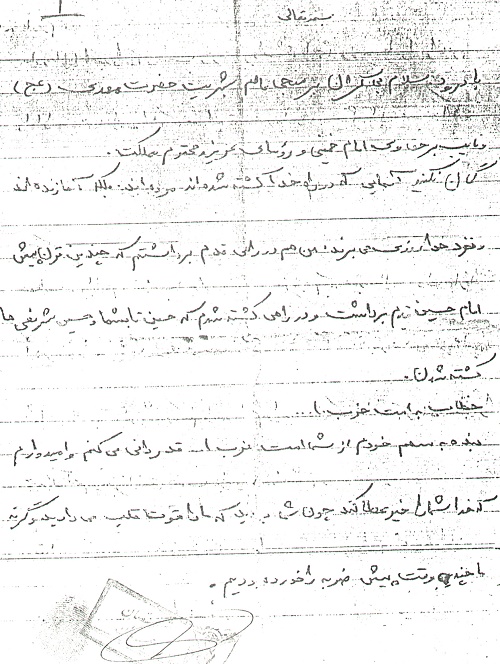 بسمه تعالی
با درود و سلام بیکران بر منجی عالم بشریت حضرت مهدی (عج)
و نایب بر حق وی امام خمینی و رؤسای عزیز و محترم مملکت.
گمان نکنید کسانی که در راه خدا کشته شده‌اند مرده‌اند. بلکه آنها زنده‌اند
و نزد خدا روزی می برند. من هم در راهی قدم برداشتم که چندین قرن پیش
امام حسین قدم برداشت و در راهی کشته شدم که حسین شریفی ها
کشته شدن.
خطاب به امت حزب ا...
بنده به سهم خودم از شما امت حزب ا... قدردانی می کنم و امیدوارم
که خدا شما را خیر عطا کند چون شما که ما را قوت قلب می دارید وگرنه
ما چندین وقت پیش ضربه را خورده بودیم.